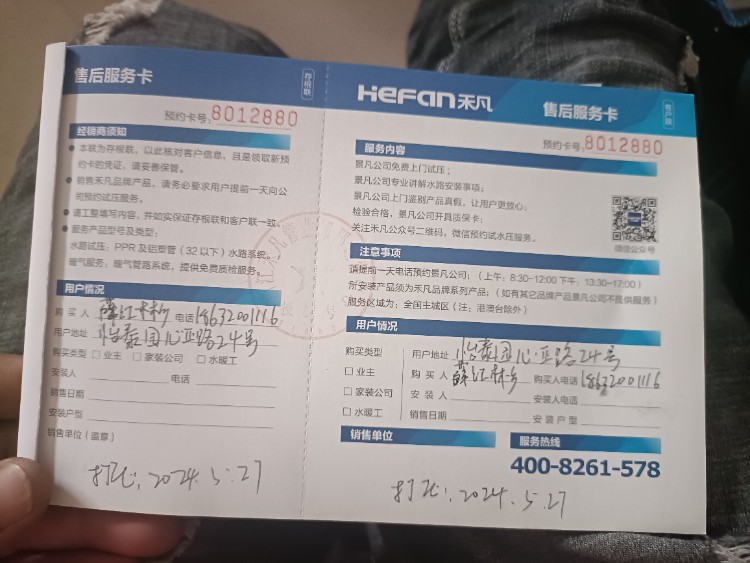 售后服务卡
存根联
预约卡号:8012880
经销商须知
●本联为存根联，以此核对客户信息，且是领取新预
约卡的凭证，请妥善保管。
●销售禾凡品牌产品，请务必要求用户提前一天向公
司预约试压服务。
●请工整填写内容，并如实保证存根联和客户联一致。
●服务产品型号及类型:
水路试压：PPR及铝塑管（32以下）水路系统。
暖气服务：暖气管路系统，提供免费质检服务。
用户情况
购买人 电话18632001116
用户地址 怡泰园心亚路24号
购买类型 □业主 □家装公司 □水暖工
安装人 电话
销售日期
安装户型
销售单位（盖章）
2024.5.27
HeFan禾凡
售后服务卡
客户联
预约卡号:8012880
服务内容
景凡公司免费上门试压；
景凡公司专业讲解水路安装事项；
景凡公司上门鉴别产品真假，让用户更放心；
检验合格，景凡公司开具质保卡；
关注禾凡公众号二维码，微信预约试水压服务。
微信公众号
注意事项
请提前一天电话预约景凡公司；（上午：8:30-12:00 下午：13:30-17:00）
所安装产品须为禾凡品牌系列产品；（如有其它品牌产品景凡公司不提供服务）
服务区域为：全国主城区（注：港澳台除外）
用户情况
购买类型
□业主
□家装公司
□水暖工
用户地址 怡泰园心亚路24号
购买人 购买人电话18632001116
安装人 安装人电话
销售日期 安装户型
销售单位
服务热线
400-8261-578
2024.5.27